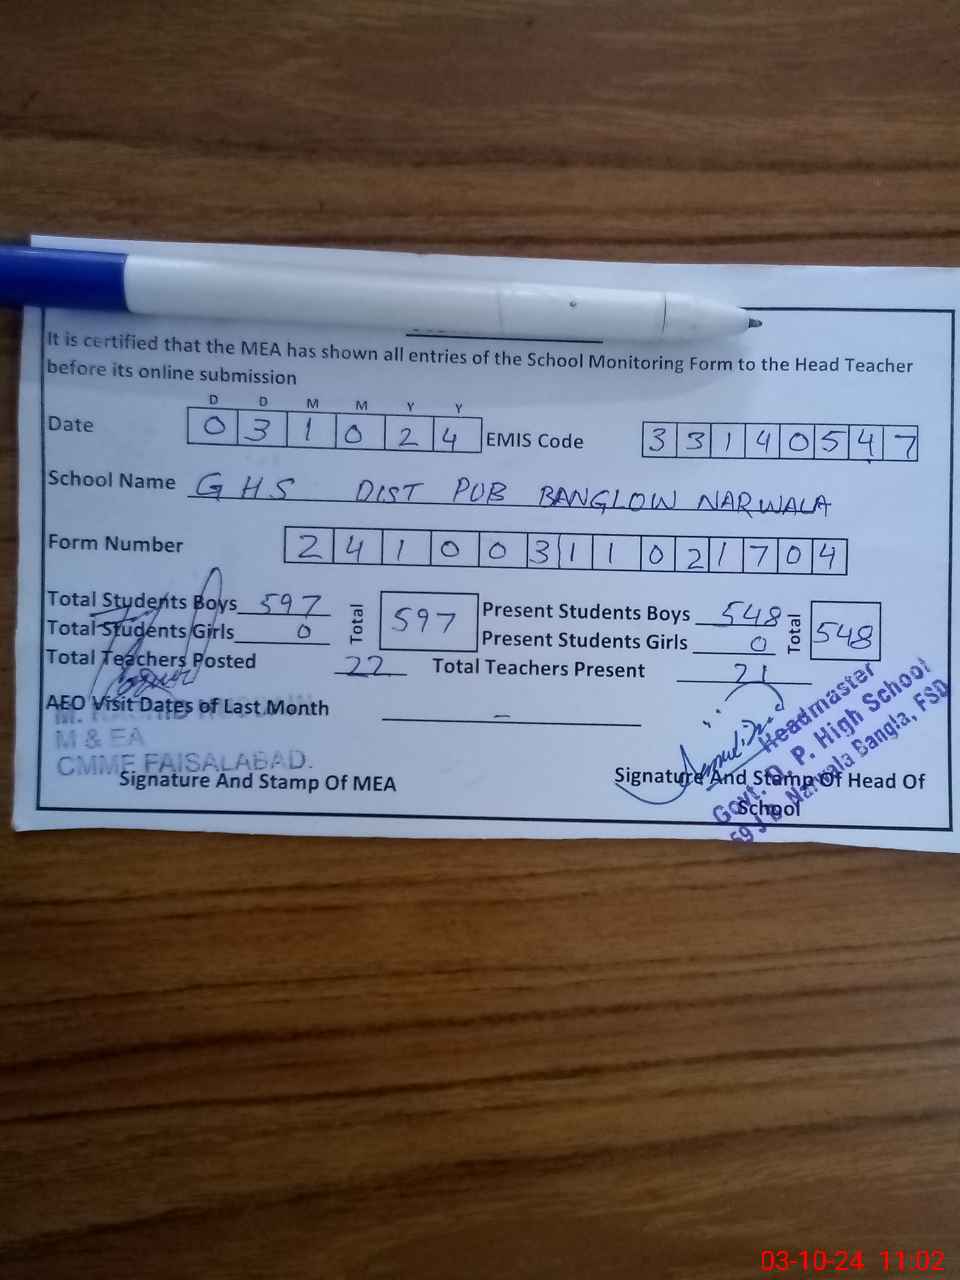 It is certified that the MEA has shown all entries of the School Monitoring Form to the Head Teacher
before its online submission
D D M M Y Y
Date 0 3 1 0 2 4 EMIS Code 3 3 1 4 0 5 4 7
School Name GHS DIST PUB BANGLOW NARWALA
Form Number 2 4 1 0 0 3 1 1 0 2 1 7 0 4
Total Students Boys 597 Total 597 Present Students Boys 548 Total 548
Total Students Girls 0 Present Students Girls 0
Total Teachers Posted 22 Total Teachers Present 21
AEO Visit Dates of Last Month –
M & EA
CMMF FAISALABAD.
Signature And Stamp Of MEA
Headmaster
Govt. D. P. High School
Narwala Bangla, FSD
Signature And Stamp Of Head Of
School
03-10-24 11:02